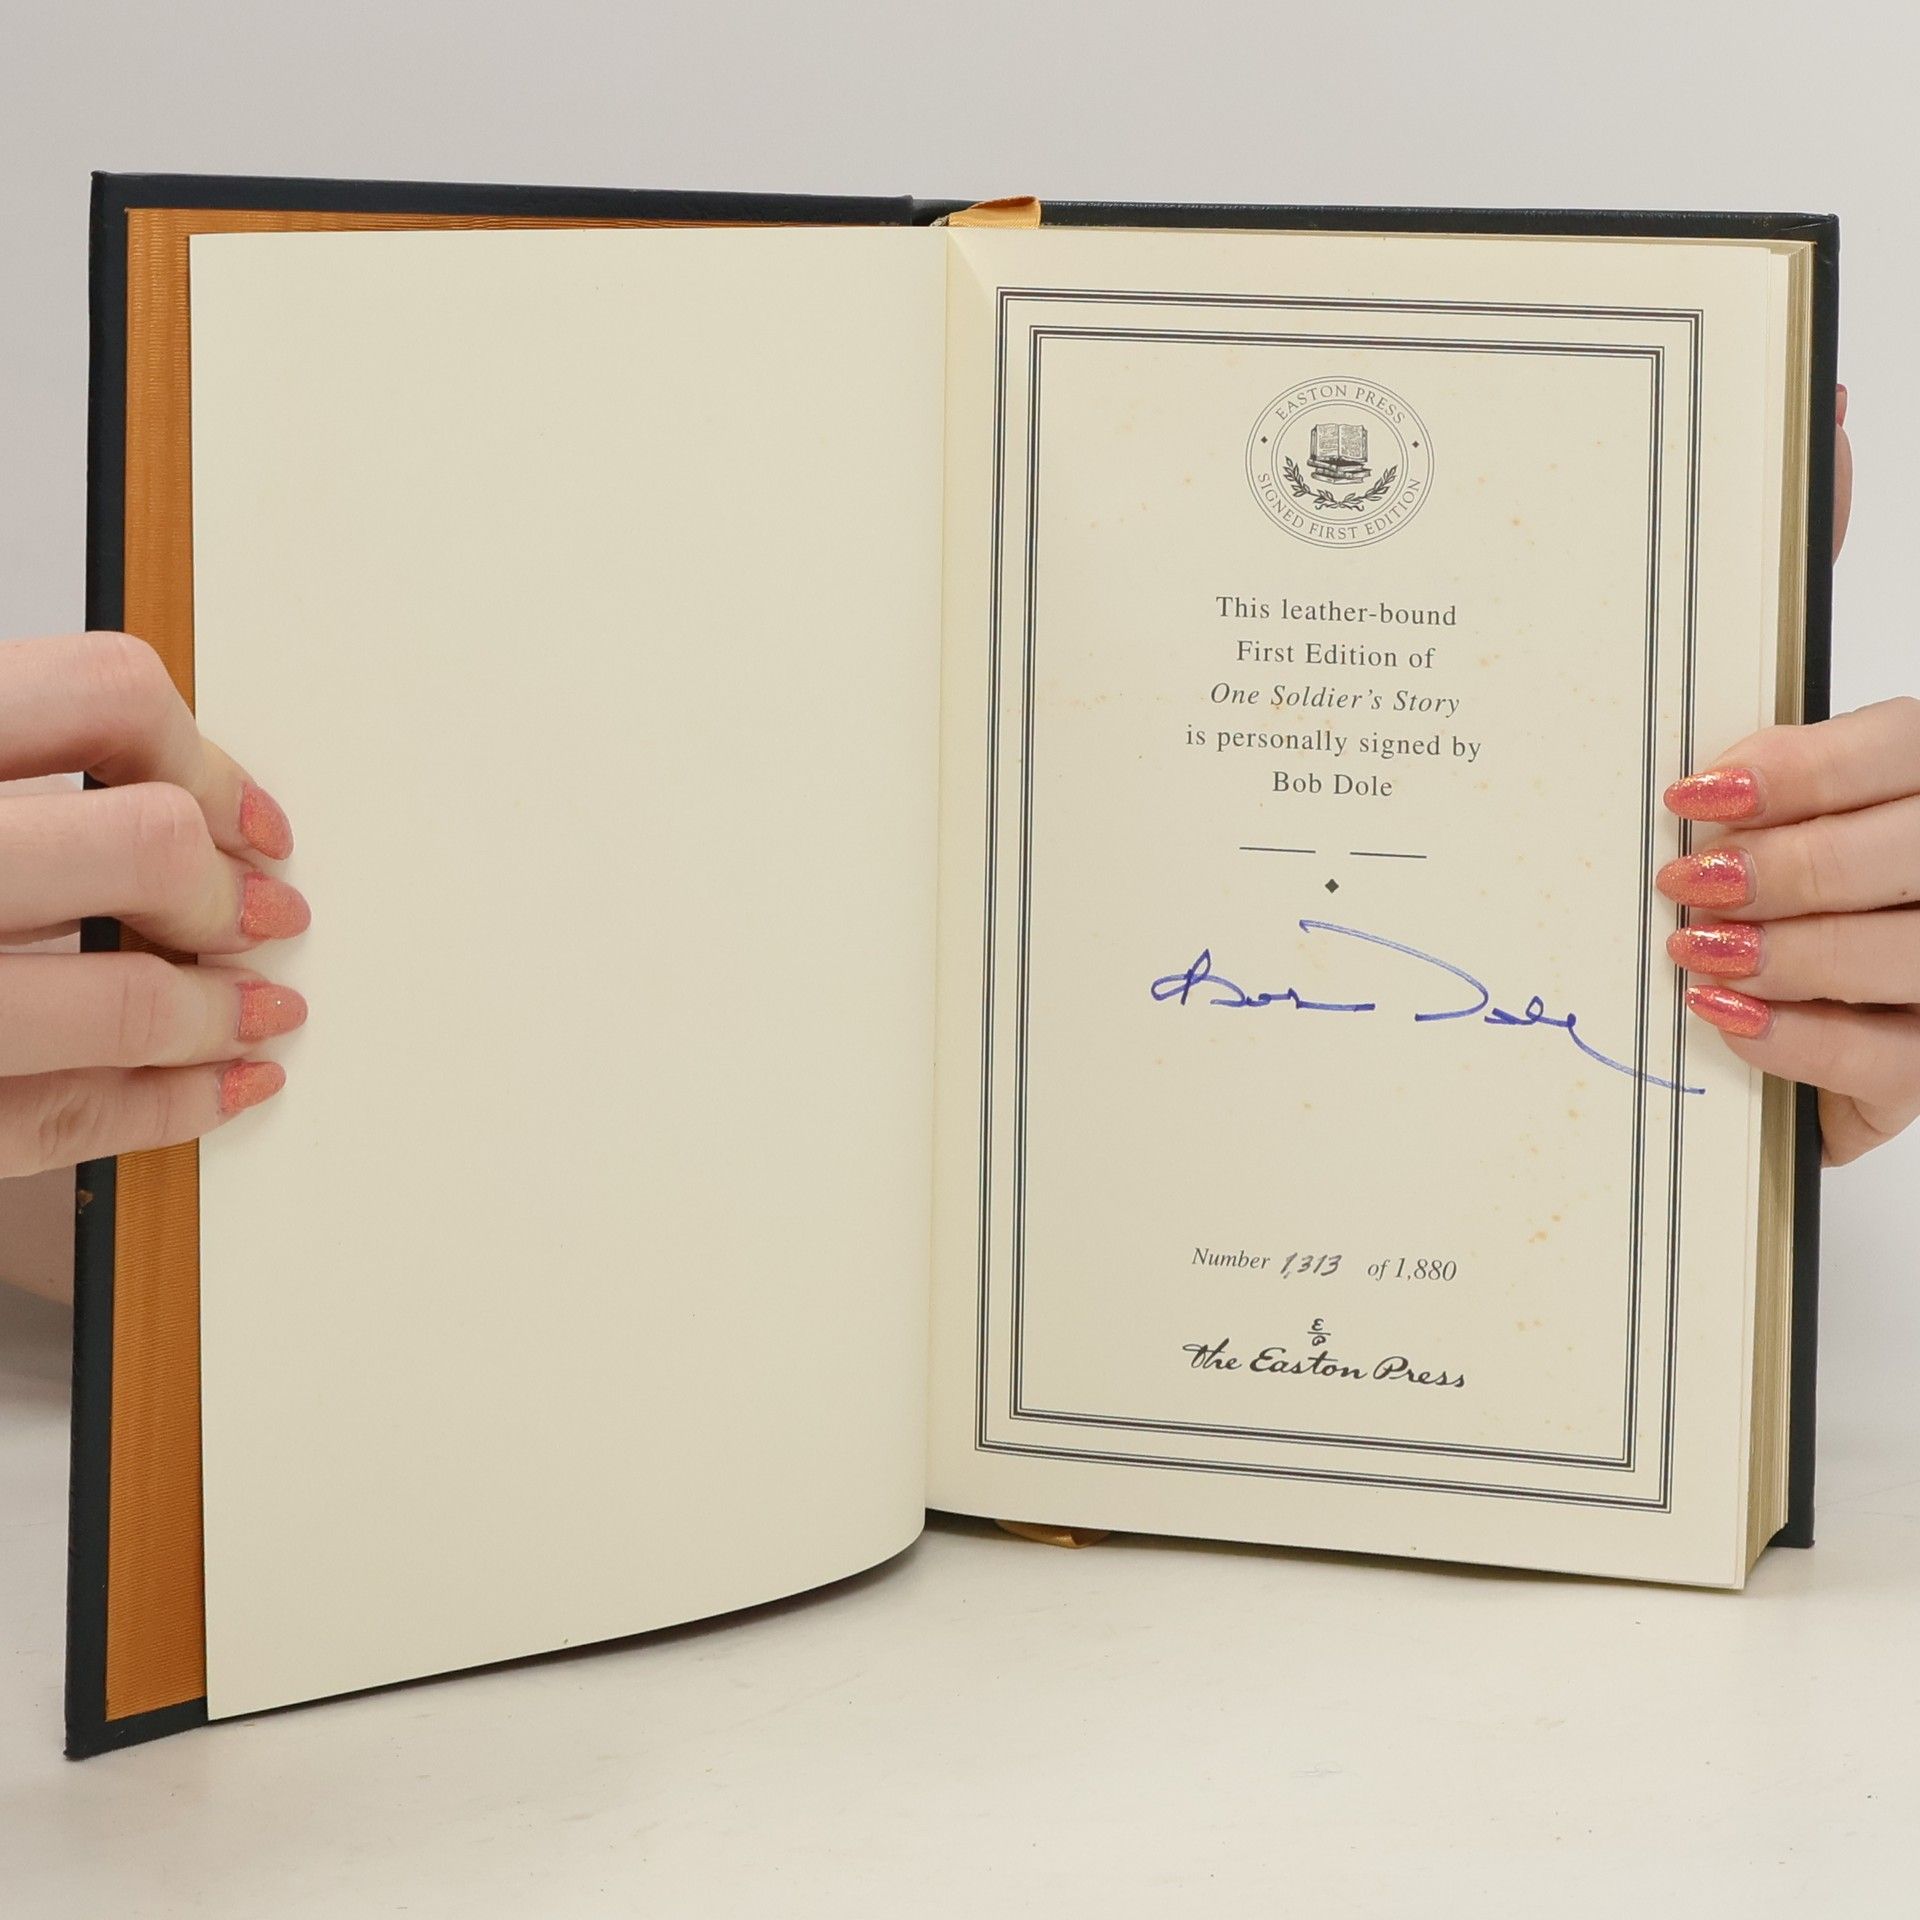 EASTON PRESS
SIGNED FIRST EDITION
This leather-bound
First Edition of
One Soldier's Story
is personally signed by
Bob Dole
Bob Dole
Number 1,313 of 1,880
E
P
The Easton Press